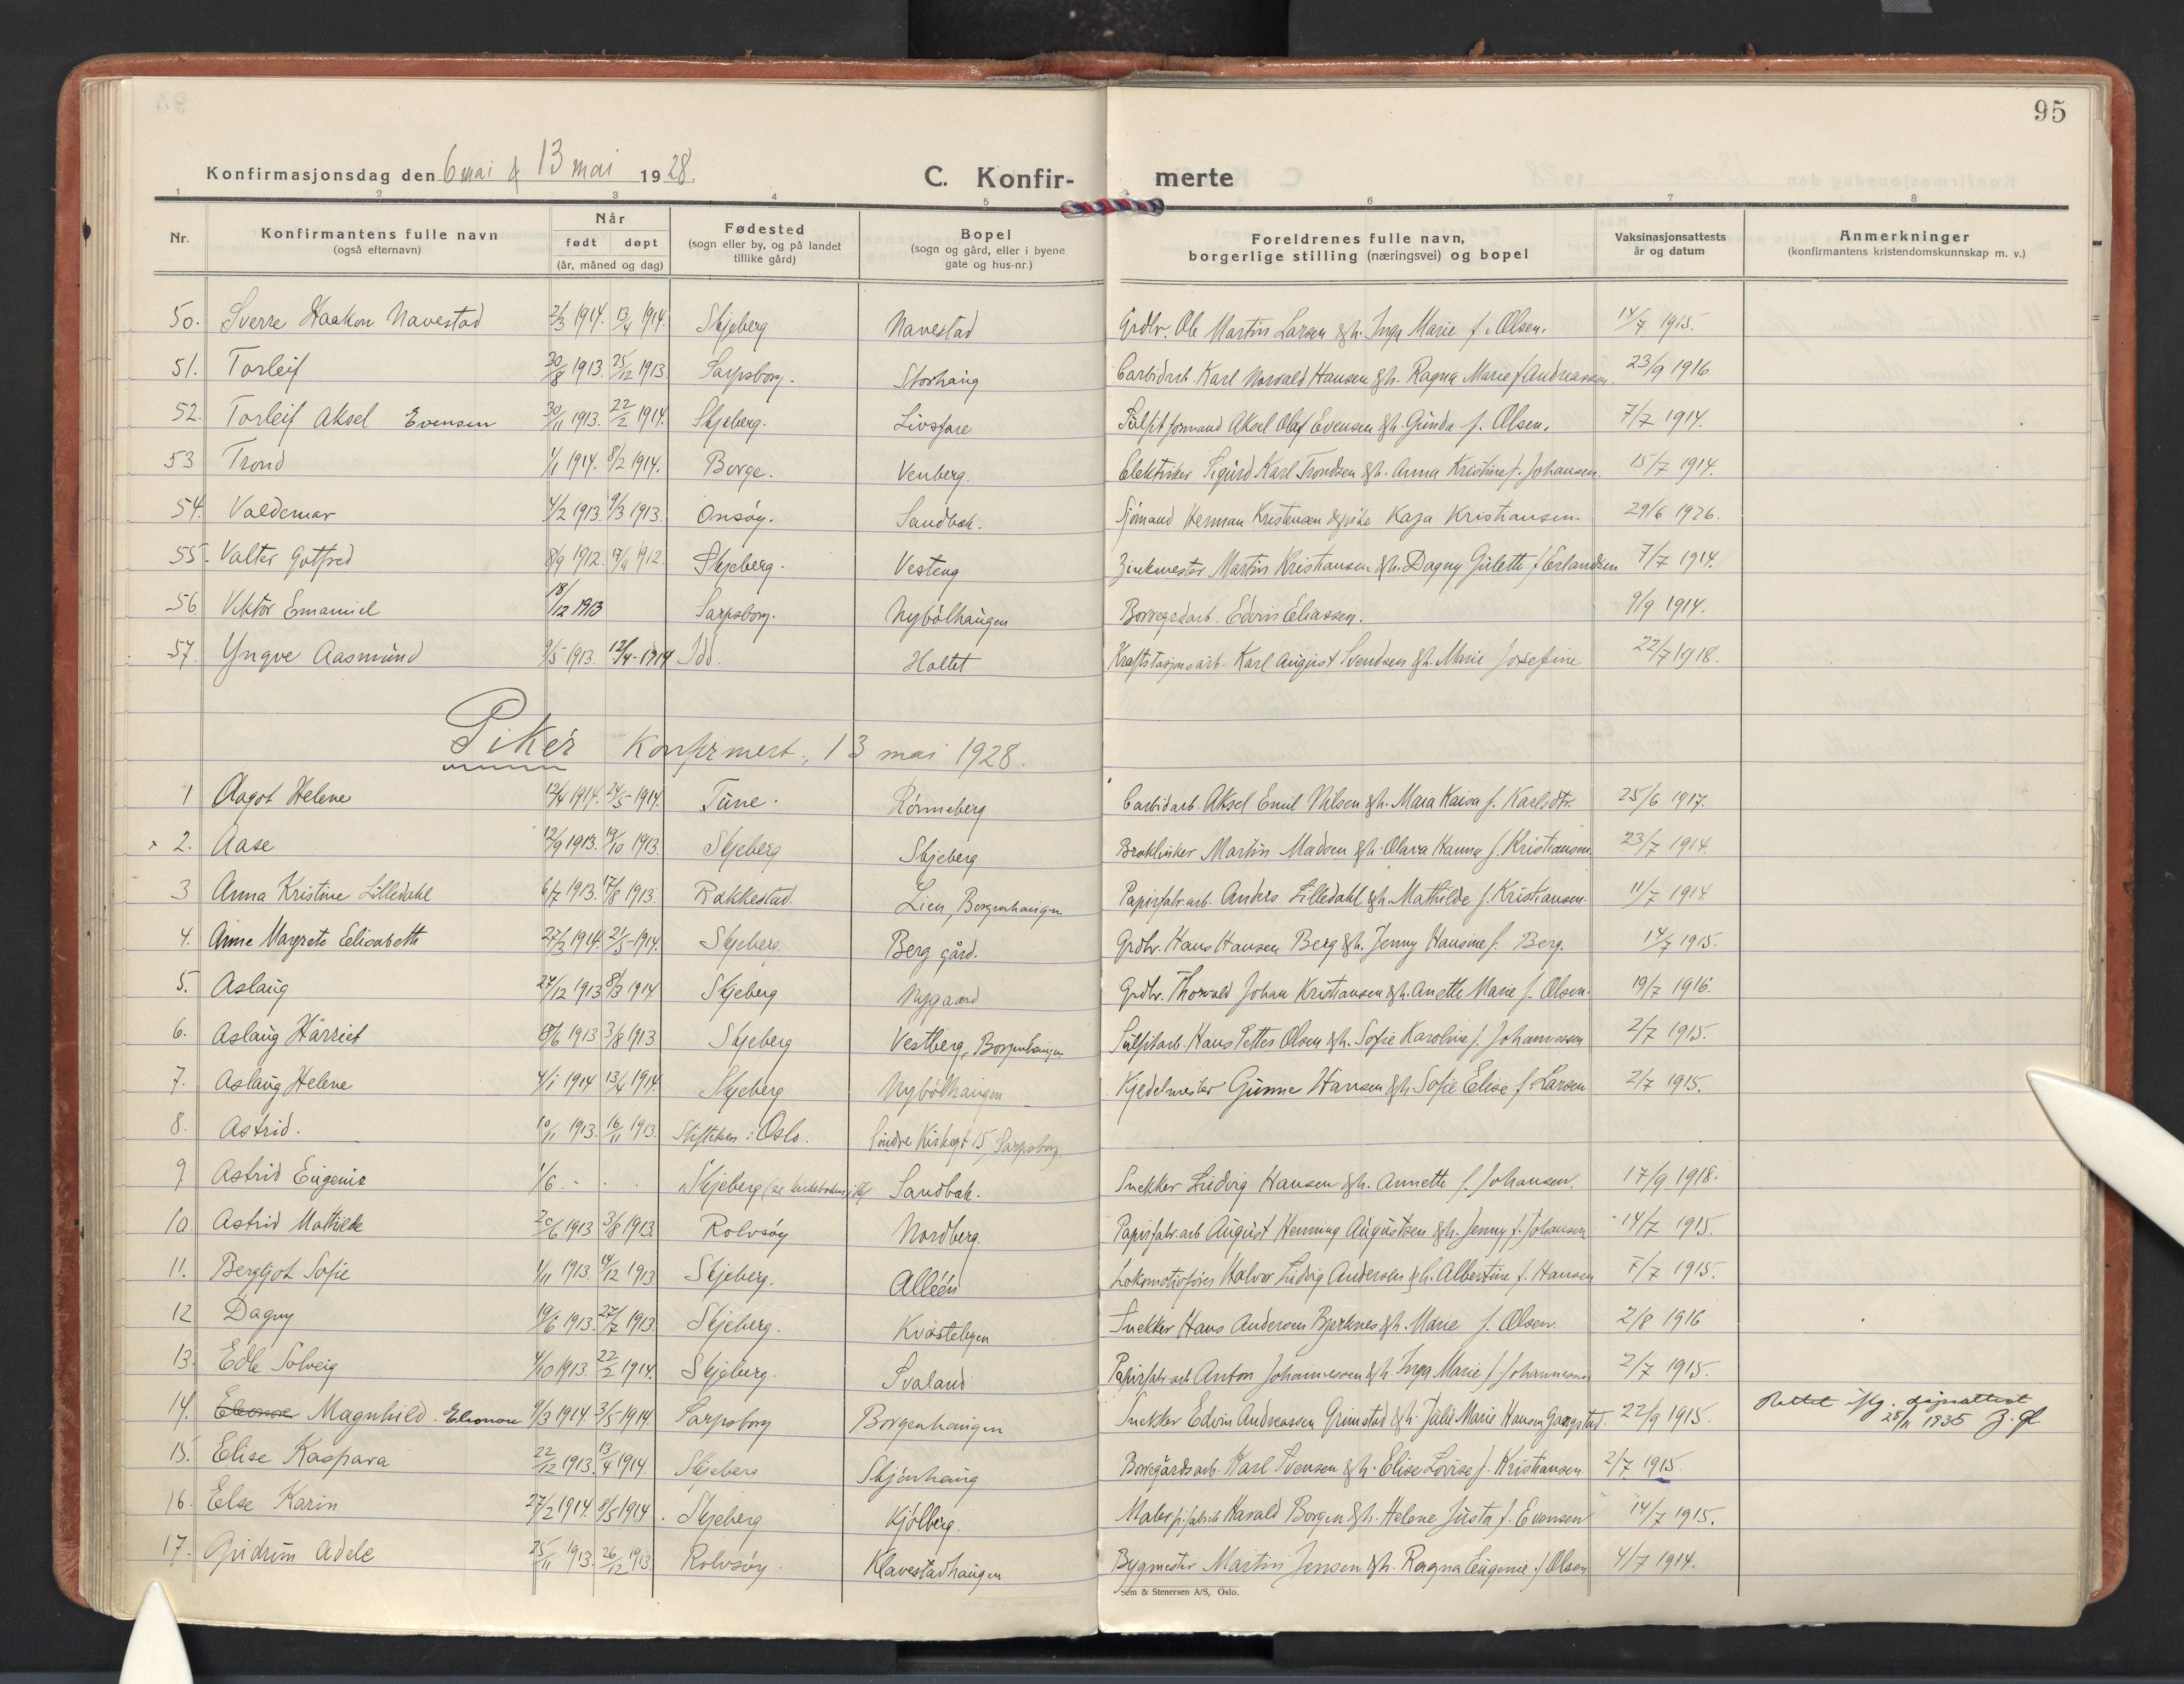 95
Konfirmasjonsdag den 6 mai & 13 mai 1928.
C. Konfir-merte
1 2 3 4 5 6 7 8
Nr. Konfirmantens fulle navn (også efternavn) Når født døpt (år, måned og dag) Fødested (sogn eller by, og på landet tillike gård) Bopel (sogn og gård, eller i byene gate og hus-nr.) Foreldrenes fulle navn, borgerlige stilling (næringsvei) og bopel Vaksinasjonsattests år og datum Anmerkninger (konfirmantens kristendomskunnskap m. v.)
50. Sverre Haakon Navestad 2/3 1914. 13/4 1914. Skjeberg Navestad Grdbr. Ole Martin Larsen & h. Inga Marie f. Olsen. 14/7 1915.
51. Torleif 30/8 1913. 25/12 1913. Sarpsborg. Storhaug Carbidarb. Karl Norvald Hansen & h. Ragna Marie f Andreassen. 23/9 1916.
52. Torleif Aksel Evensen 30/11 1913. 22/2 1914. Skjeberg. Livsfare Sulfitformand Aksel Olaf Evensen & h. Gunda f. Olsen. 7/7 1914.
53 Trond 1/1 1914. 8/2 1914. Borge. Venberg. Elektriker Sigurd Karl Trondsen & h. Anna Kristine f. Johansen. 15/7 1914.
54. Valdemar 4/2 1913. 9/3 1913. Onsøy. Sandbak. Sjømand Herman Kristensen & pike Kaja Kristiansen. 29/6 1926.
55. Valter Gotfred 8/9 1912. 17/11 1912. Skjeberg. Vesteng Zinkmester Martin Kristiansen & h. Dagny Gulette f Erlandsen 7/7 1914.
56 Viktor Emanuel 18/12 1913 Sarpsborg. Nybølhaugen Borregrdarb. Edvin Eliassen. 9/9 1914.
57. Yngve Aasmund 9/5 1913. 12/4-1914 Idd. Holtet Kraftstasjonsarb. Karl August Svendsen & h. Marie Josefine 22/7 1918.
Piker Konfirmert, 13 mai 1928.
1 Aagot Helene 12/4 1914. 24/5-1914. Tune. Rønneberg Carbidarb. Aksel Emil Nilsen & h. Maia Kaisa f. Karlsdtr. 25/6 1917.
2. Aase 12/9 1913. 19/10 1913. Skjeberg Skjeberg Martin Madsen & h. Olava Hanna f. Kristiansen. 23/7 1914.
3 Anna Kristine Lilledahl 6/7 1913. 17/8 1913. Rakkestad. Lien, Borgenhaugen Papirfabr.arb. Anders Lilledahl & h. Mathilde f. Kristiansen. 11/7 1914.
4. Anne Margrete Elisabeth 27/3 1914. 21/5-1914. Skjeberg. Berg gård. Grdbr. Hans Hansen Berg & h. Jenny Hansine f. Berg. 14/7 1915.
5. Aslaug 27/12 1913 8/3 1914 Skjeberg Nygaard Grdbr. Thorvald Johan Kristiansen & h. Anette Marie f. Olsen. 19/7 1916.
6. Aslaug Harriet 18/6 1913 3/8 1913 Skjeberg Vestberg, Borgenhaugen Sulfitarb. Hans Petter Olsen & h. Sofie Karoline f. Johannessen 2/7 1915.
7. Aslaug Helene 4/1 1914 13/4 1914. Skjeberg Nybølhaugen Kjedelmester Gunne Hansen & h. Sofie Elise f. Larsen 2/7 1915.
8. Astrid. 10/11 1913. 16/11 1913. Stiftelsen i Oslo. Søndre Kirkegt 15, Sarpsborg.
9 Astrid Eugenie 1/6. - . . Skjeberg (se kirkeboken i Skj Sandbak. Snekker Ludvig Hansen & h. Annette f. Johansen. 17/9 1918.
10. Astrid Mathilde 20/6 1913 3/8 1913. Rolvsøy Nordberg. Papirfabr.arb August Henning Augustsen & h. Jenny f. Johansen 14/7 1915.
11. Bergljot Sofie 1/11 1913. 14/12 1913 Skjeberg. Alléen Lokomotivfører Halvor Ludvig Andersen & h. Albertine f. Hansen 7/7 1915.
12 Dagny 19/6 1913. 27/7 1913. Skjeberg. Kvastebyen Snekker Hans Andersen Bjerknes & h. Marie f. Olsen. 2/8 1916
13. Edle Solveig 4/10 1913. 22/2 1914. Skjeberg. Svaland Papirfabr.arb Anton Johannessen & h. Inga Marie f Johannessen 2/7 1915.
14. Eleonore Magnhild. Elionore 9/3 1914. 3/5 1914. Sarpsborg Borgenhaugen Snekker Edvin Andreassen Grimstad & h. Julie Marie Hansen Gaagstad. 22/9 1915. Rettet iflg. dåpsattest 28/11 1935
15. Elise Kaspara 22/12 1913. 13/4 1914. Skjeberg Skjønhaug Borregårdsarb. Karl Svensen & h. Elise Lovise f. Kristiansen. 2/7 1915.
16. Else Karin 27/2 1914. 8/5 1914. Skjeberg Kjølberg. Maler p. fabrik Harald Borgen & h. Helene Justa f. Evensen 14/7 1915.
17. Gudrun Adele 25/11 1913. 26/12 1913. Rolvsøy. Klavestadhaugen Bygmester Martin Jensen & h. Ragna Eugenie f Olsen 4/7 1914.
Sem & Stenersen A/S, Oslo.